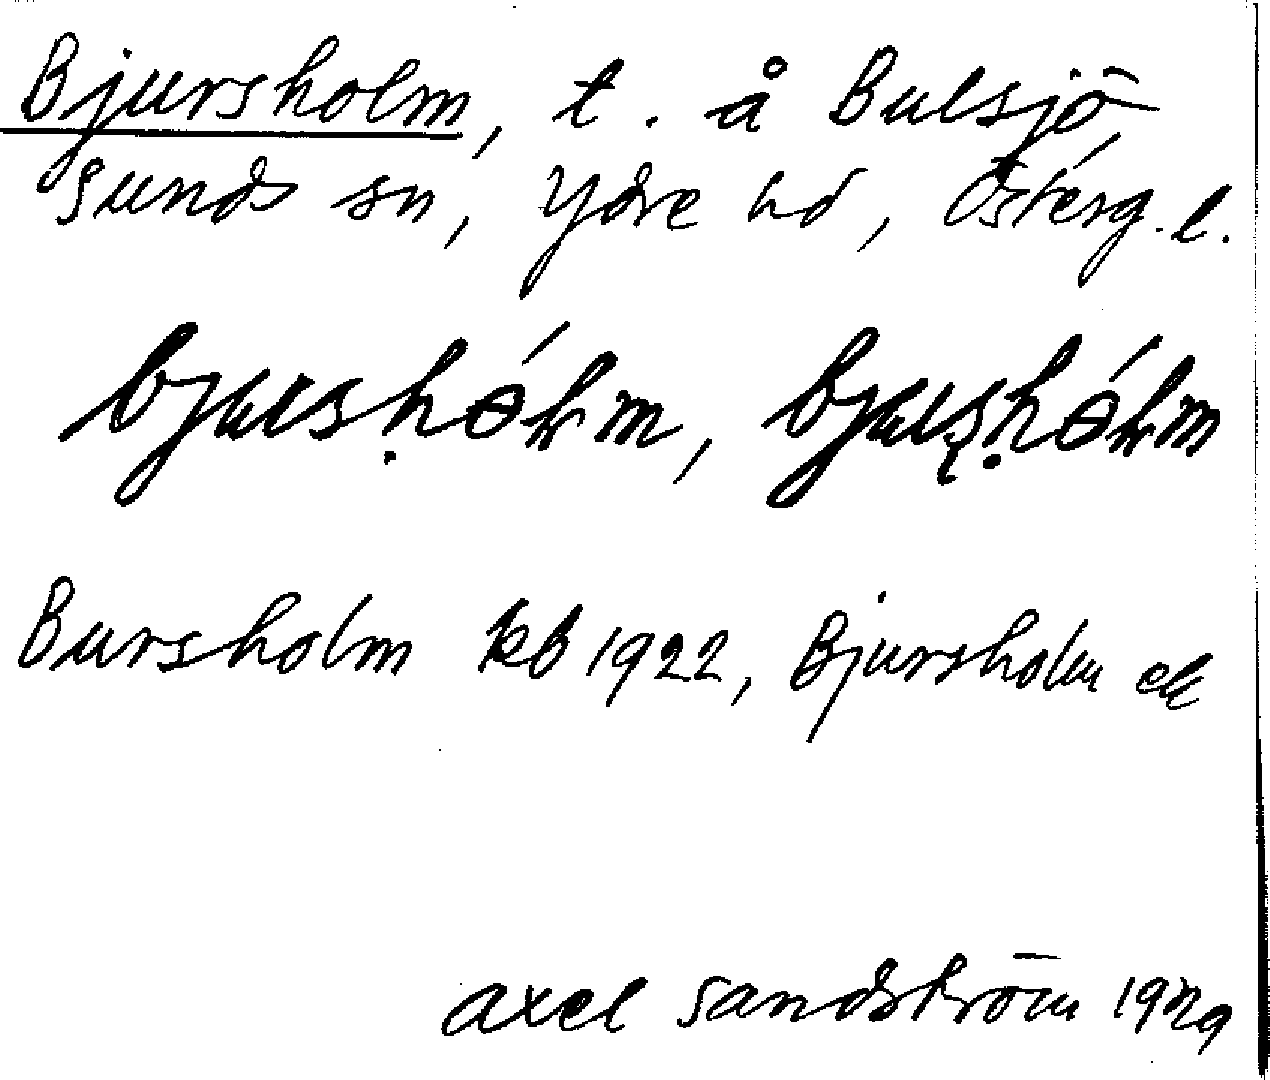 Bjursholm, t. å Bulsjö
Sunds sn, Ydre hd, Österg. l.
Bursholm kb 1922, Bjursholm ek
Axel Sandström 1929